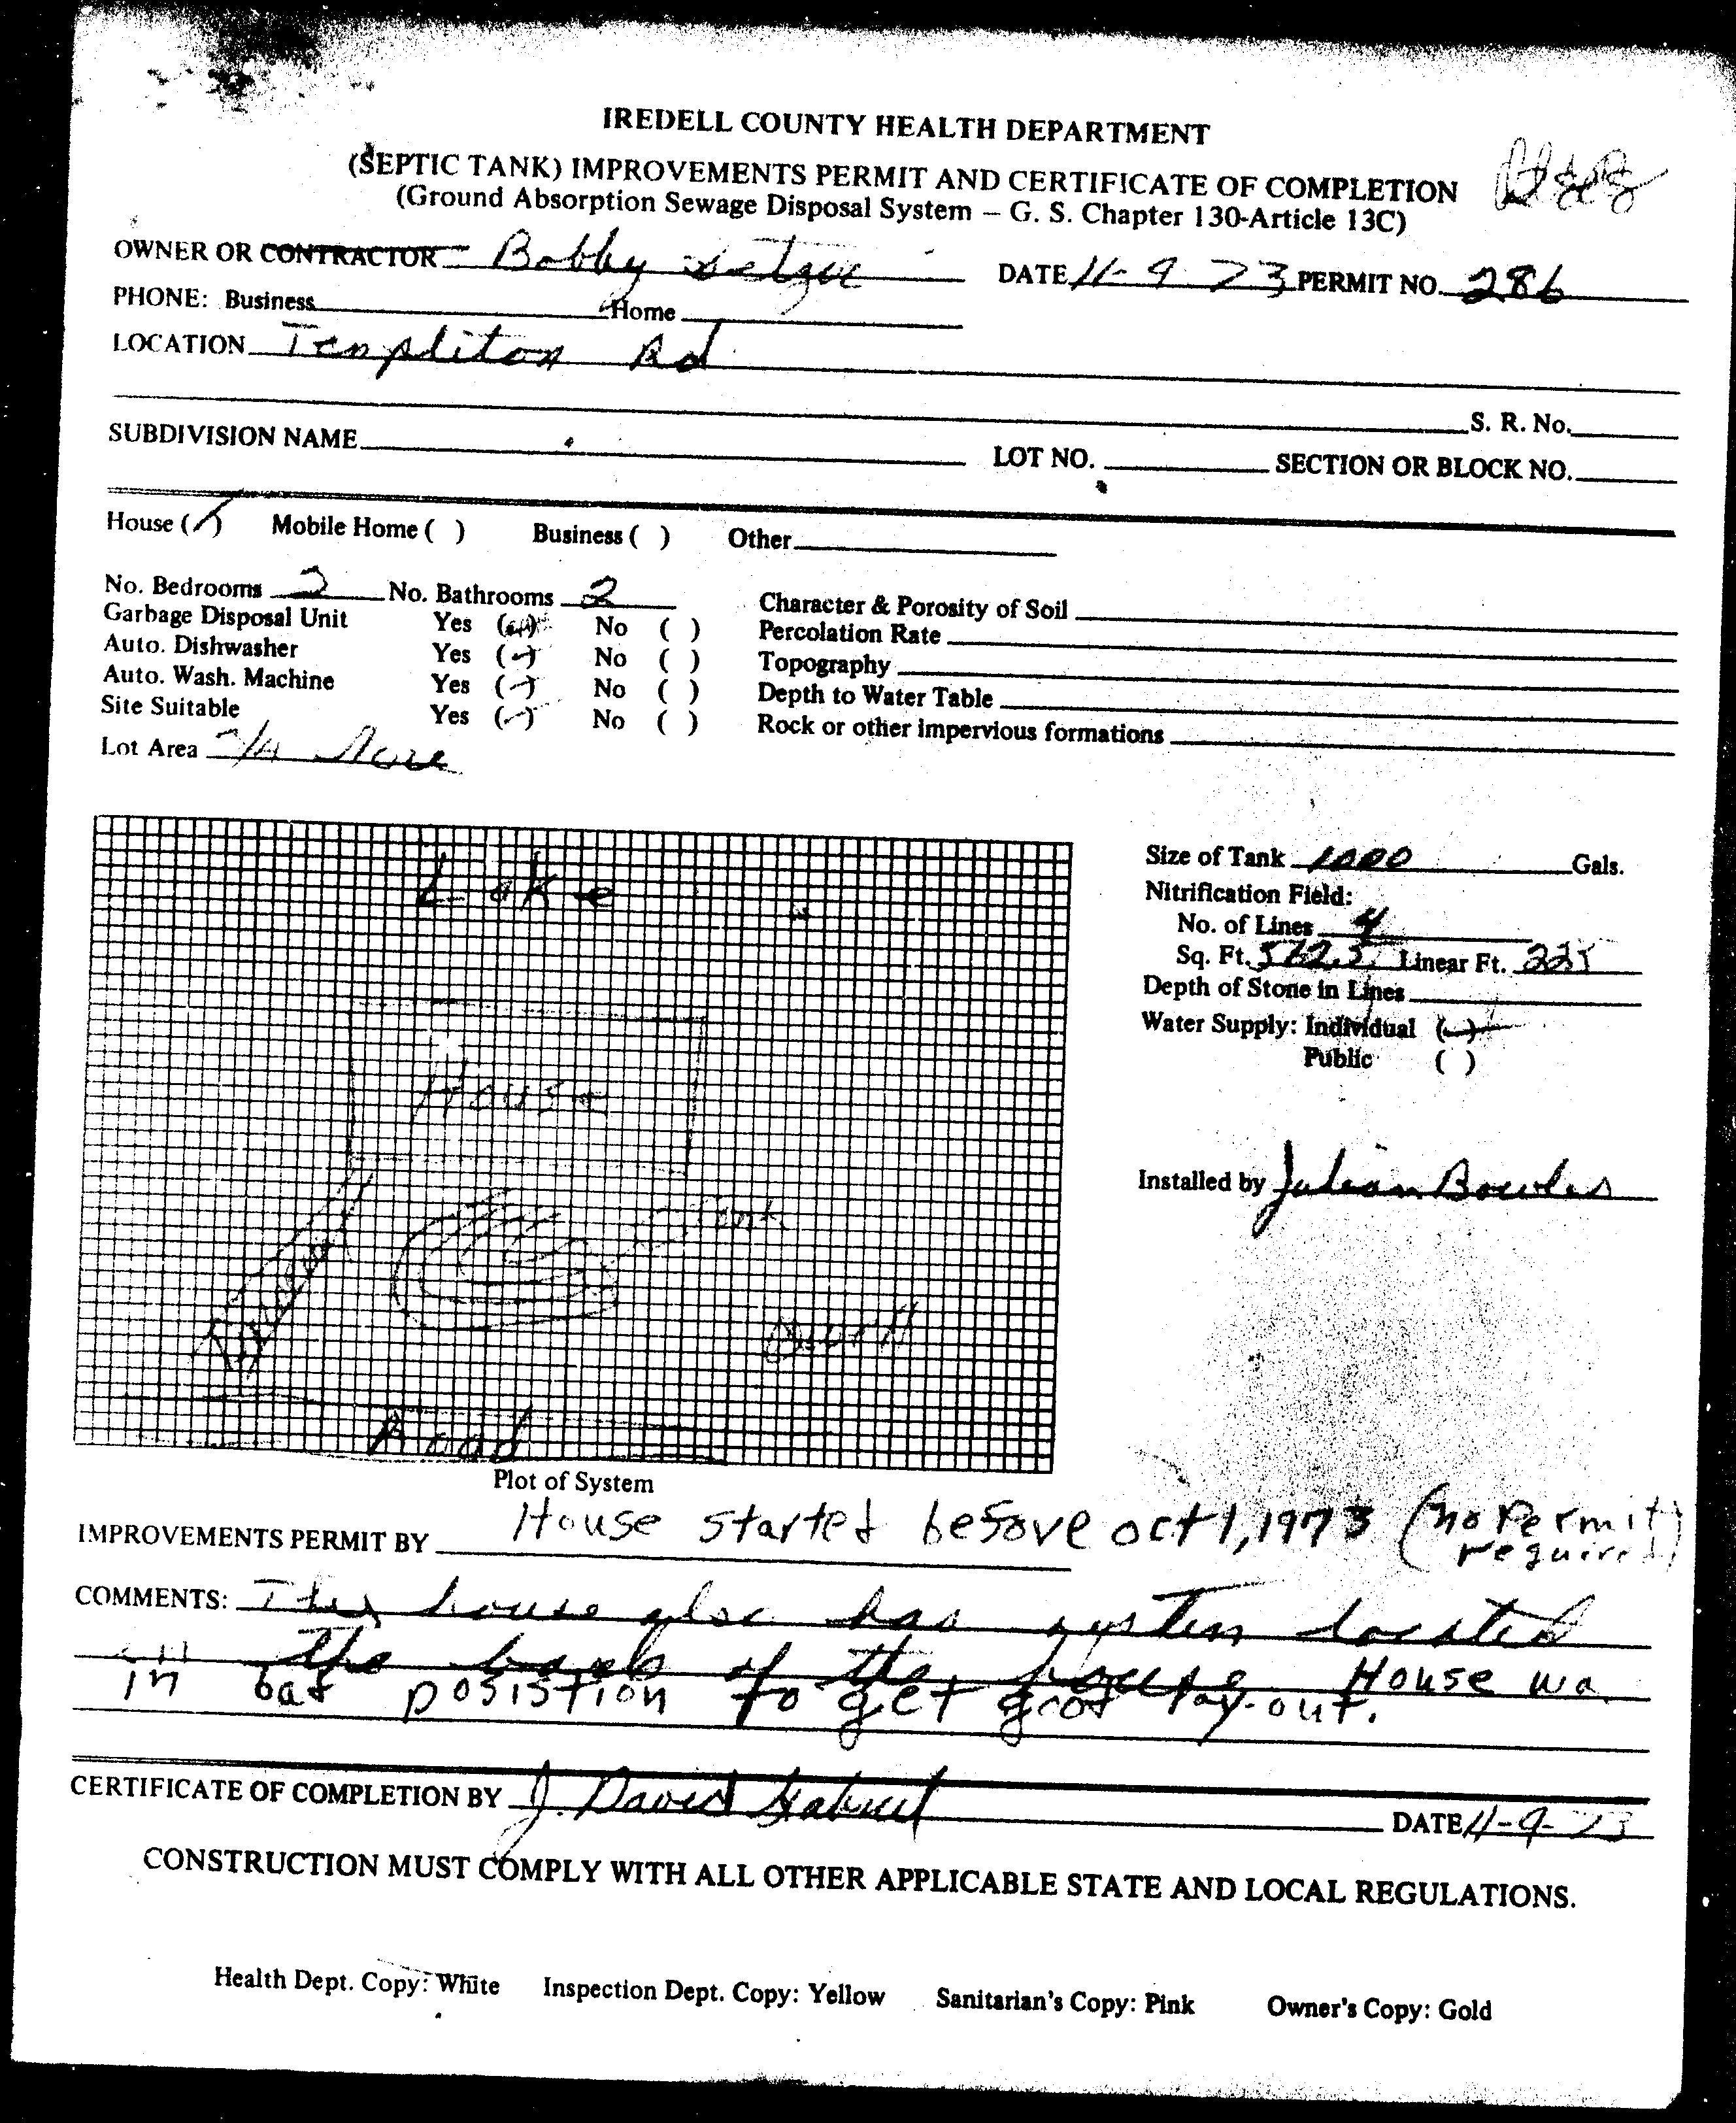 IREDELL COUNTY HEALTH DEPARTMENT
(SEPTIC TANK) IMPROVEMENTS PERMIT AND CERTIFICATE OF COMPLETION
(Ground Absorption Sewage Disposal System – G. S. Chapter 130-Article 13C)
OWNER OR CONTRACTOR Bobby DATE 11-9-73 PERMIT NO. 286
PHONE: Business Home
LOCATION Templiton Rd
S. R. No.
SUBDIVISION NAME LOT NO. SECTION OR BLOCK NO.
House (✓) Mobile Home ( ) Business ( ) Other
No. Bedrooms No. Bathrooms 2 Character & Porosity of Soil
Garbage Disposal Unit Yes (✓) No ( ) Percolation Rate
Auto. Dishwasher Yes (✓) No ( ) Topography
Auto. Wash. Machine Yes (✓) No ( ) Depth to Water Table
Site Suitable Yes (✓) No ( ) Rock or other impervious formations
Lot Area 3/4 Acre
Lake
House
Tank
Road
Plot of System
Size of Tank 1000 Gals.
Nitrification Field:
No. of Lines 4
Sq. Ft. Linear Ft. 225
Depth of Stone in Lines
Water Supply: Individual (✓)
Public ( )
Installed by Julian Bowles
IMPROVEMENTS PERMIT BY House started before oct 1, 1973 (no Permit
required)
COMMENTS: This house also has system located
the back of the house House wa
in bad posistion to get good lay-out.
CERTIFICATE OF COMPLETION BY J. David Gabriel DATE 11-9-73
CONSTRUCTION MUST COMPLY WITH ALL OTHER APPLICABLE STATE AND LOCAL REGULATIONS.
Health Dept. Copy: White Inspection Dept. Copy: Yellow Sanitarian's Copy: Pink Owner's Copy: Gold